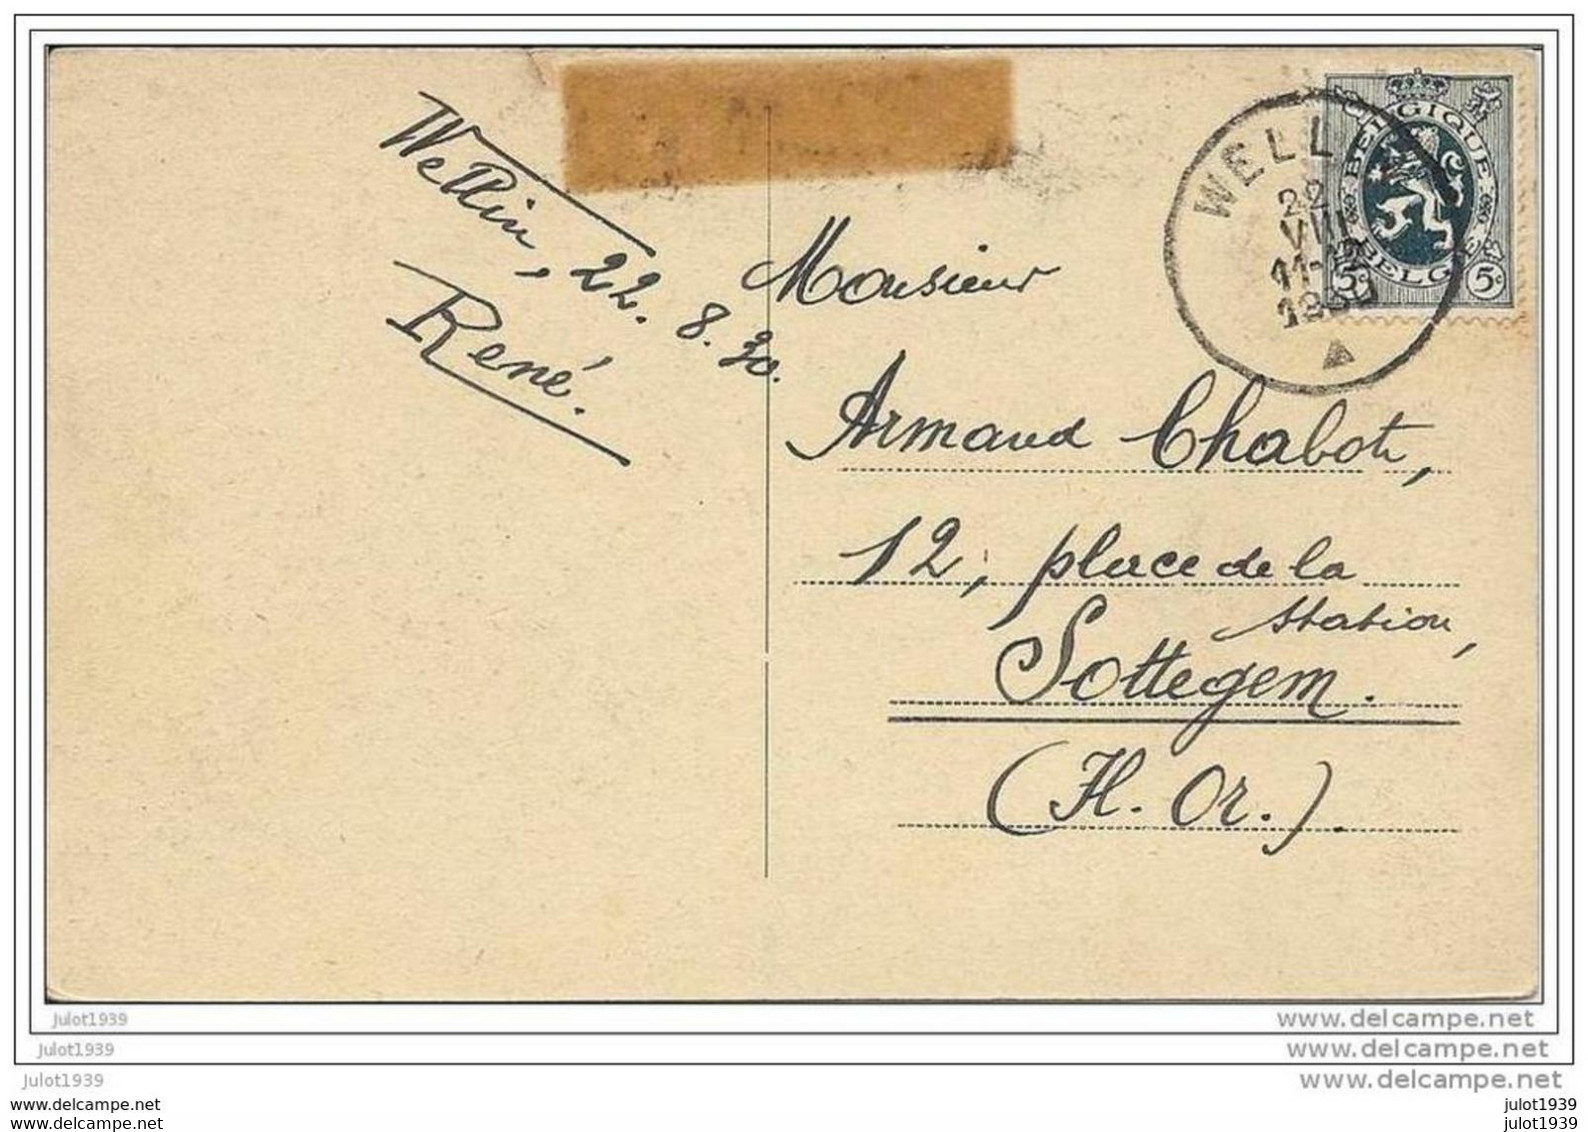 Wellin, 22.8.30.
René.
WELL
22
VIII
11-12
1930
BELGIQUE
BELG
5c 5c
Monsieur
Armand Chabot,
12, place de la
station,
Sottegem.
(H. Or.).
julot1939
www.delcampe.net
julot1939
www.delcampe.net
julot1939
www.delcampe.net
www.delcampe.net
julot1939
www.delcampe.net
julot1939